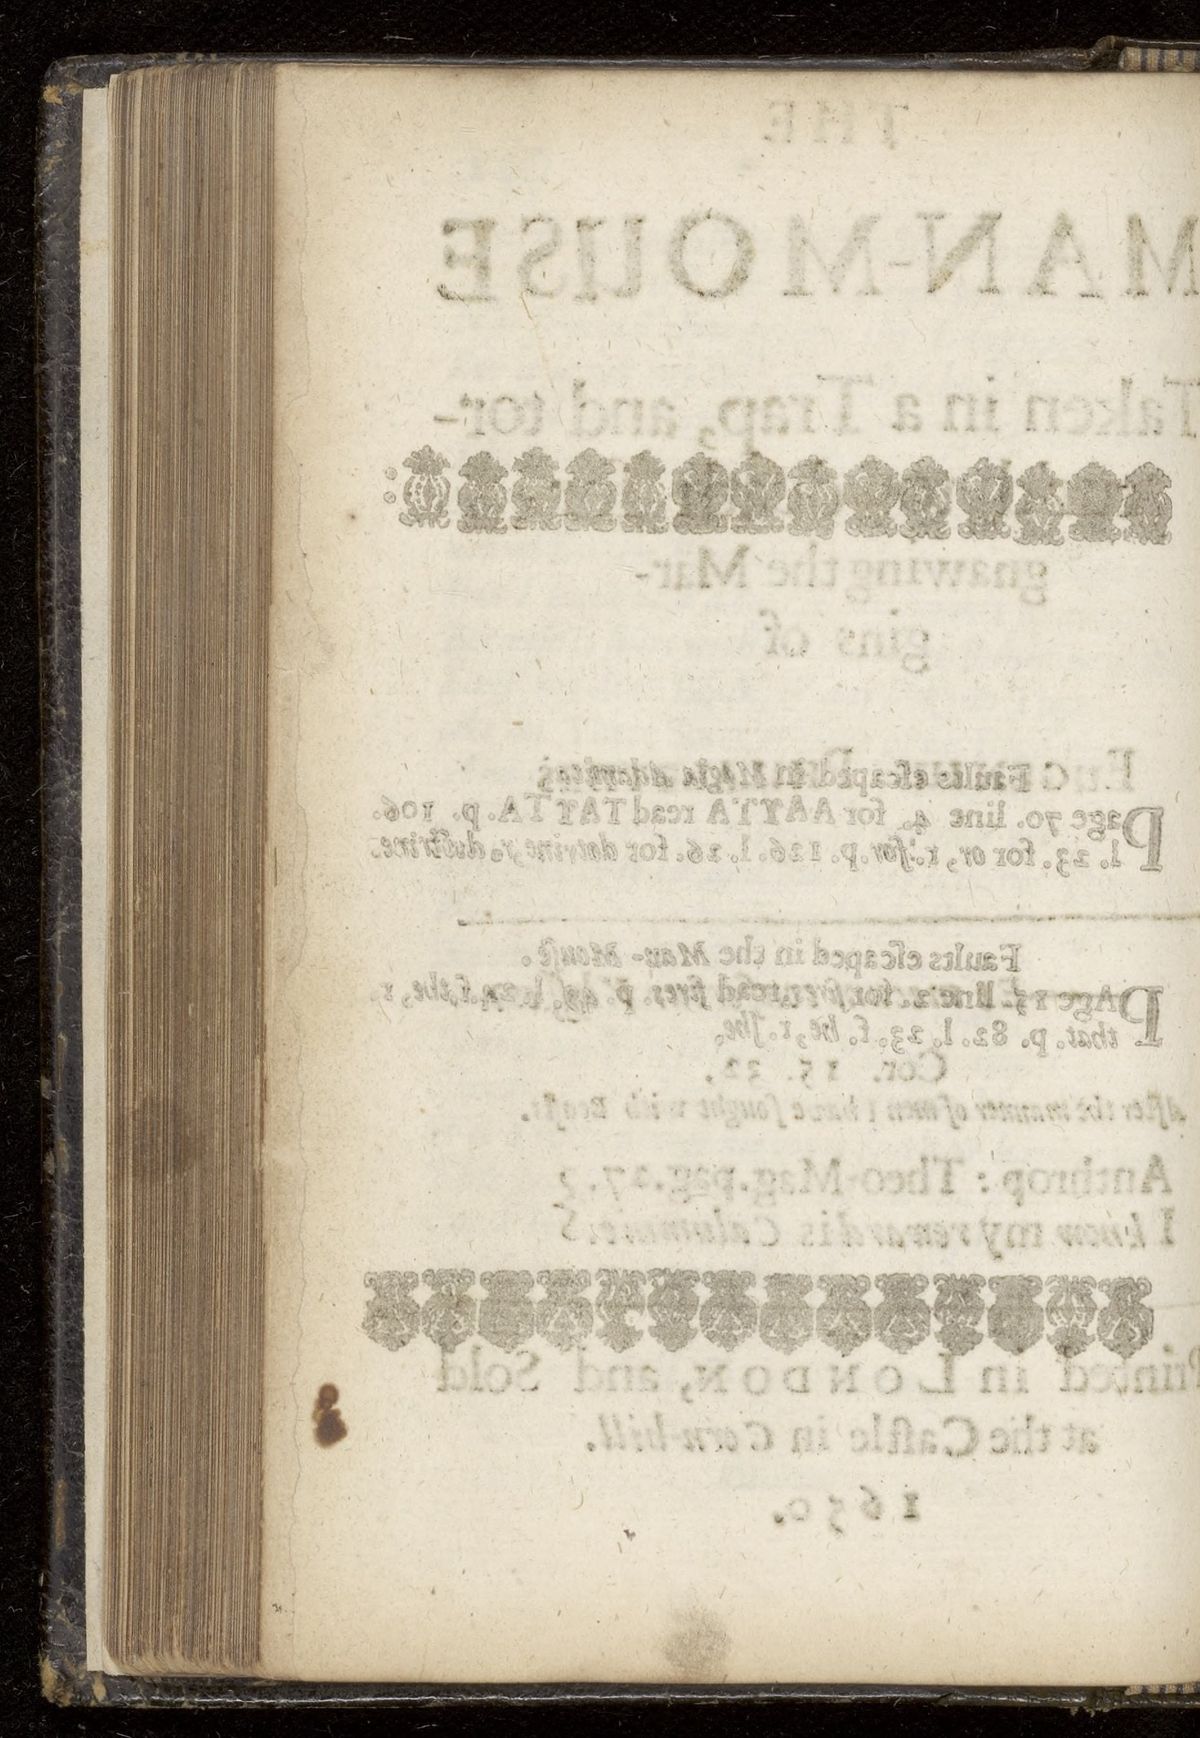 THE
MAN-MOUSE
Taken in a Trap, and tor-
gnawing the Mar-
gins of
Faults eſcaped in Magia Adamica,
Page 70. line 4. for AAYTA read TAYTA. p. 106.
l. 23. for or, r. for. p. 126. l. 26. for dotrine, r. doctrine.
Faults eſcaped in the Man-Mouſe.
PAge 15 line 2. for
that. p. 82. l. 23. f. he, r. ſhe,
Cor. 15. 32.
After the manner of men I have fought with Beaſts.
Anthrop: Theo-Mag. pag. 27.
I know my reward is Calumnie.
Printed in LONDON, and Sold
at the Caſtle in Corn-hill.
1650.